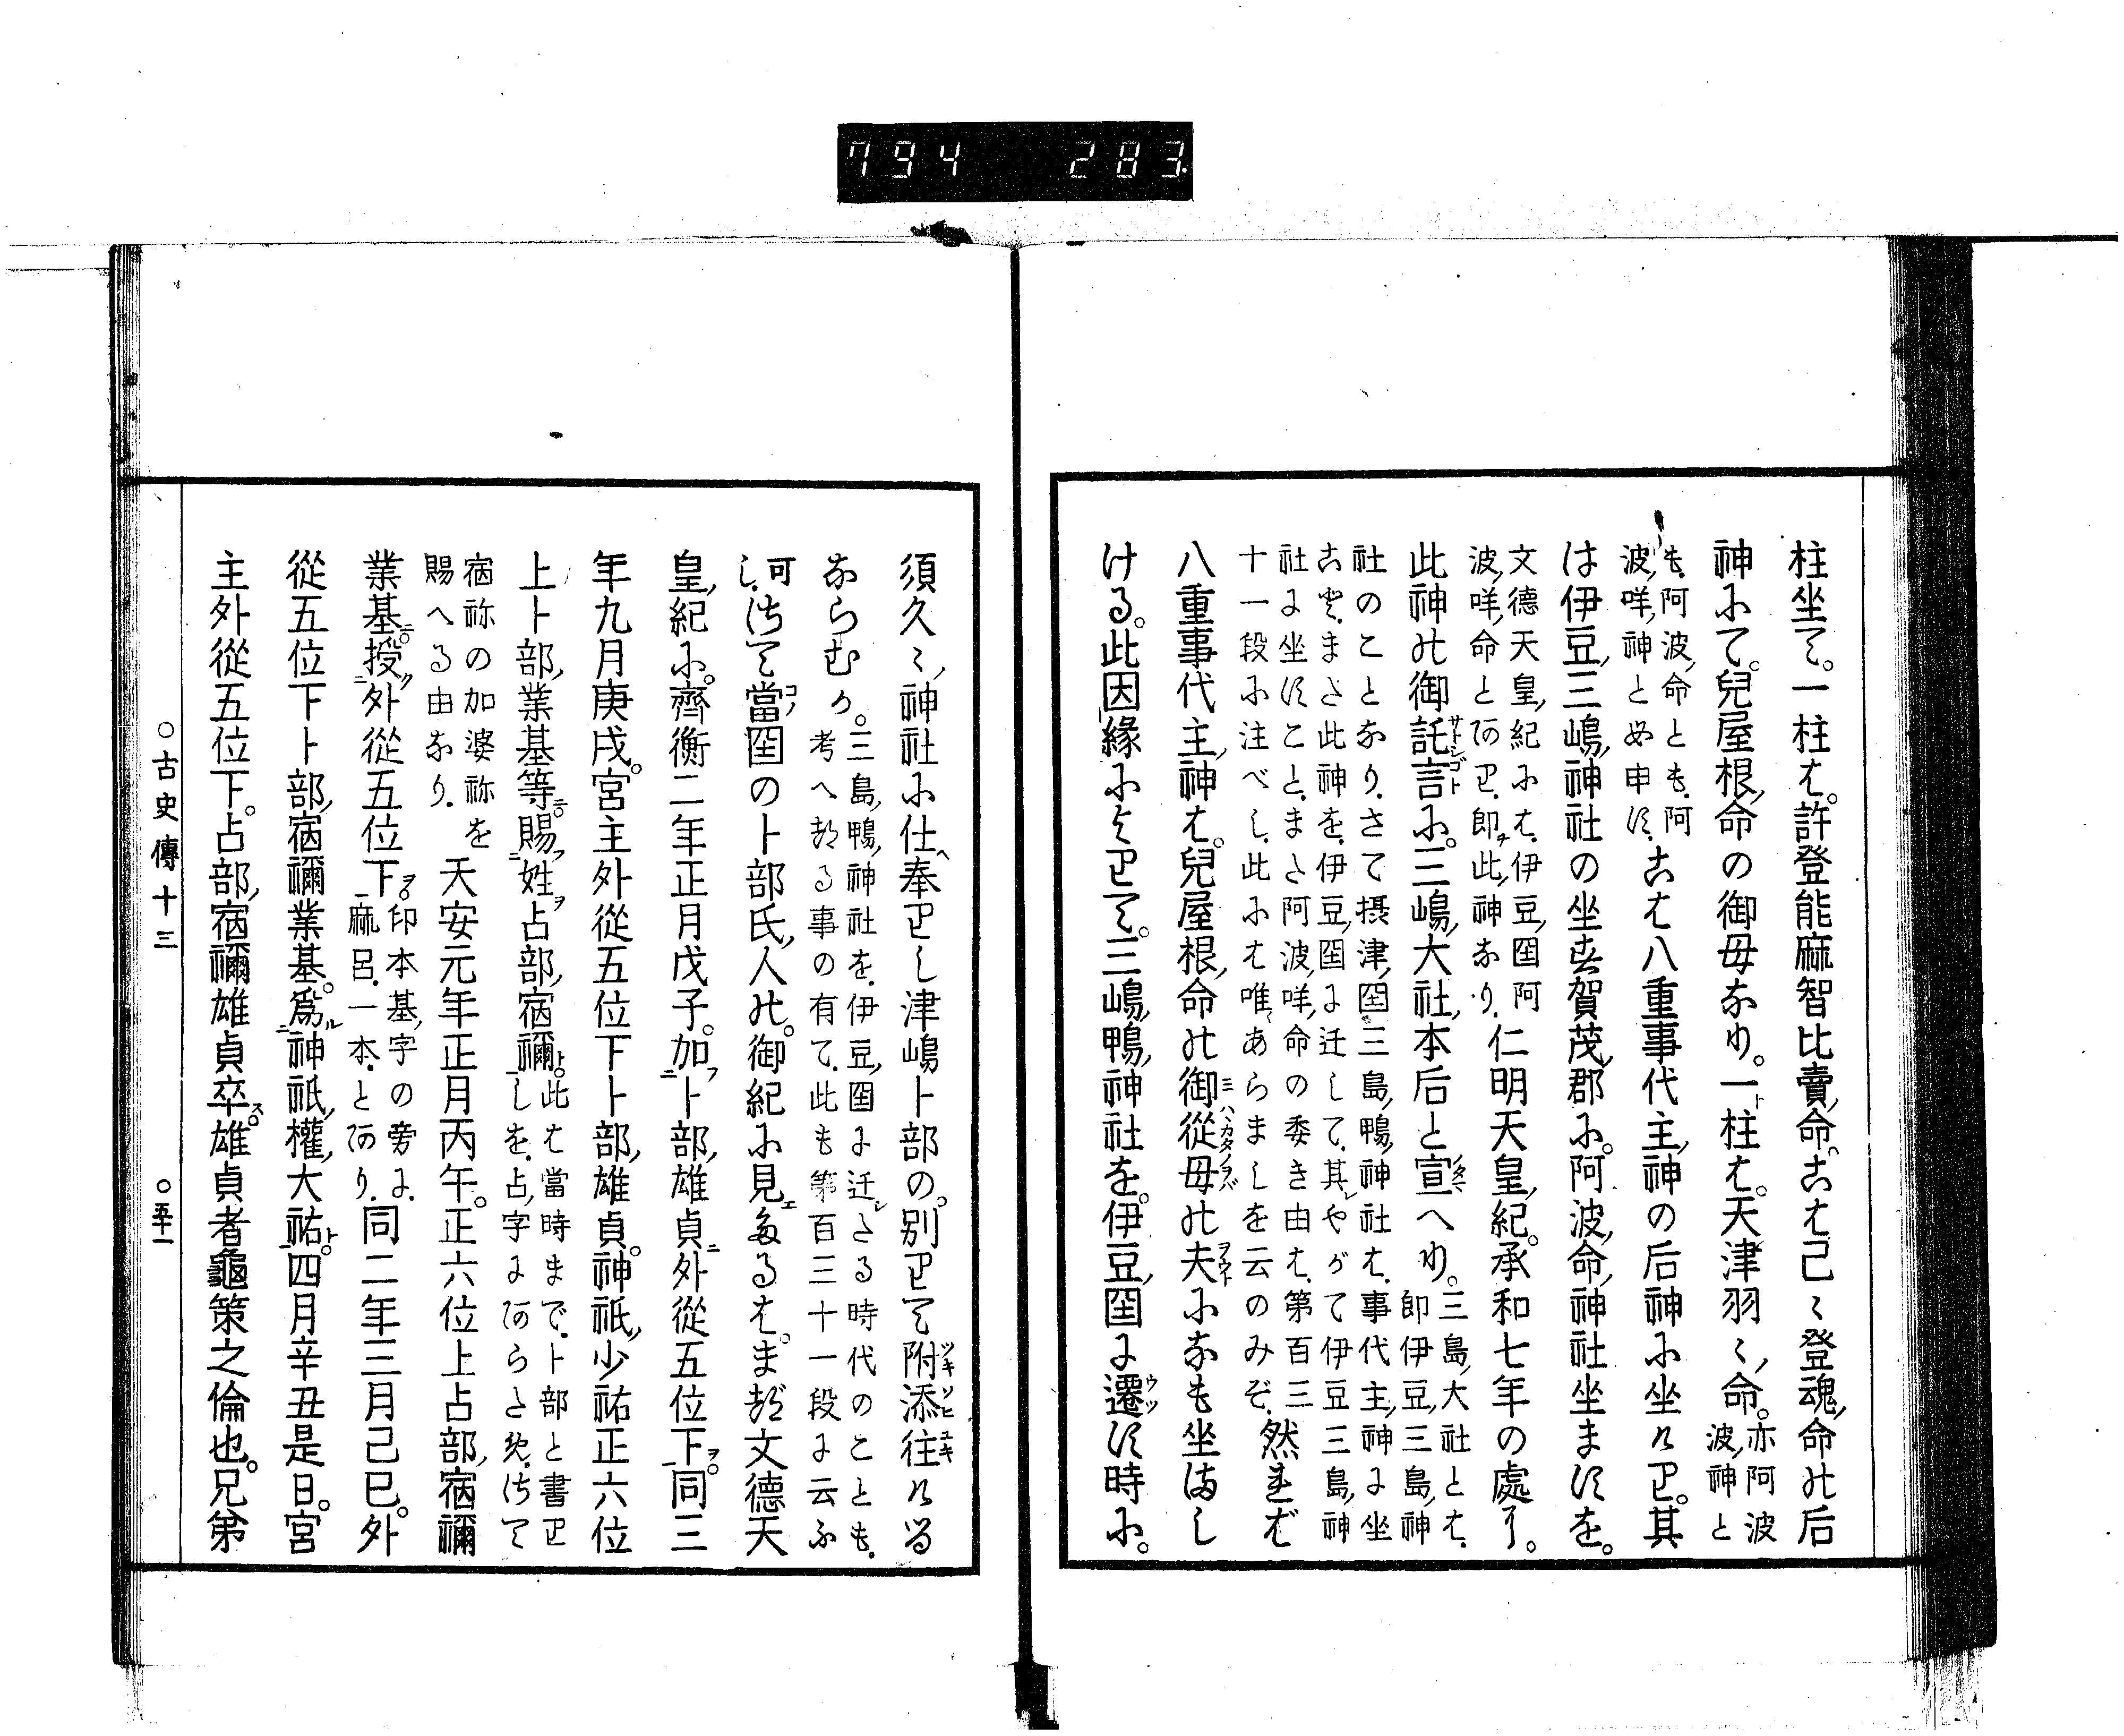 794 283
柱坐て。一柱は。許登能麻智比賣命。こは己々登魂命の后
神にて。兒屋根命の御母なり。一柱は。天津羽々命。亦阿波
波神と
も。阿波命とも。阿
波咩神とも申す。こは八重事代主神の后神に坐せり。其
は伊豆三嶋神社の坐す賀茂郡に。阿波命神社坐ますを。
文德天皇紀には。伊豆国阿
波咩命とあり。即此神なり。仁明天皇紀。承和七年の處に。
此神の御託言に。三嶋大社本后と宣へり。三島大社とは。
即伊豆三島神
社のことなり。さて摂津国三島鴨神社は。事代主神に坐
こと。また此神を。伊豆国に迁して。其やがて伊豆三島神
社に坐すこと。また阿波咩命の委き由は。第百三
十一段に注べし。此には唯あらましを云のみぞ。然れば
八重事代主神は。兒屋根命の御從母の夫になも坐まし
ける。此因緣によりて。三嶋鴨神社を。伊豆国に遷す時に。
須久々神社に仕奉りし津嶋卜部の。別りて附添往ける
ならむか。三島鴨神社を。伊豆国に迁したる時代のことも。
考へたる事の有て。此も第百三十一段に云ふ
可し。
さて當国の卜部氏人の。御紀に見えたるは。まづ文德天
皇紀に。齊衡二年正月戊子。加卜部雄貞外從五位下。同三
年九月庚戌。宮主外從五位下卜部雄貞。神祇少祐正六位
上卜部業基等賜姓占部宿禰。此は當時まで。卜部と書り
しを。占字にあらため。さて
宿祢の加婆祢を
賜へる由なり。天安元年正月丙午。正六位上占部宿禰
業基授外從五位下。印本基字の旁に。
麻呂。一本。とあり。同二年三月己巳。外
從五位下卜部宿禰業基。爲神祇權大祐。四月辛丑是日。宮
主外從五位下。占部宿禰雄貞卒。雄貞者龜策之倫也。兄弟
○古史傳十三 ○五十一